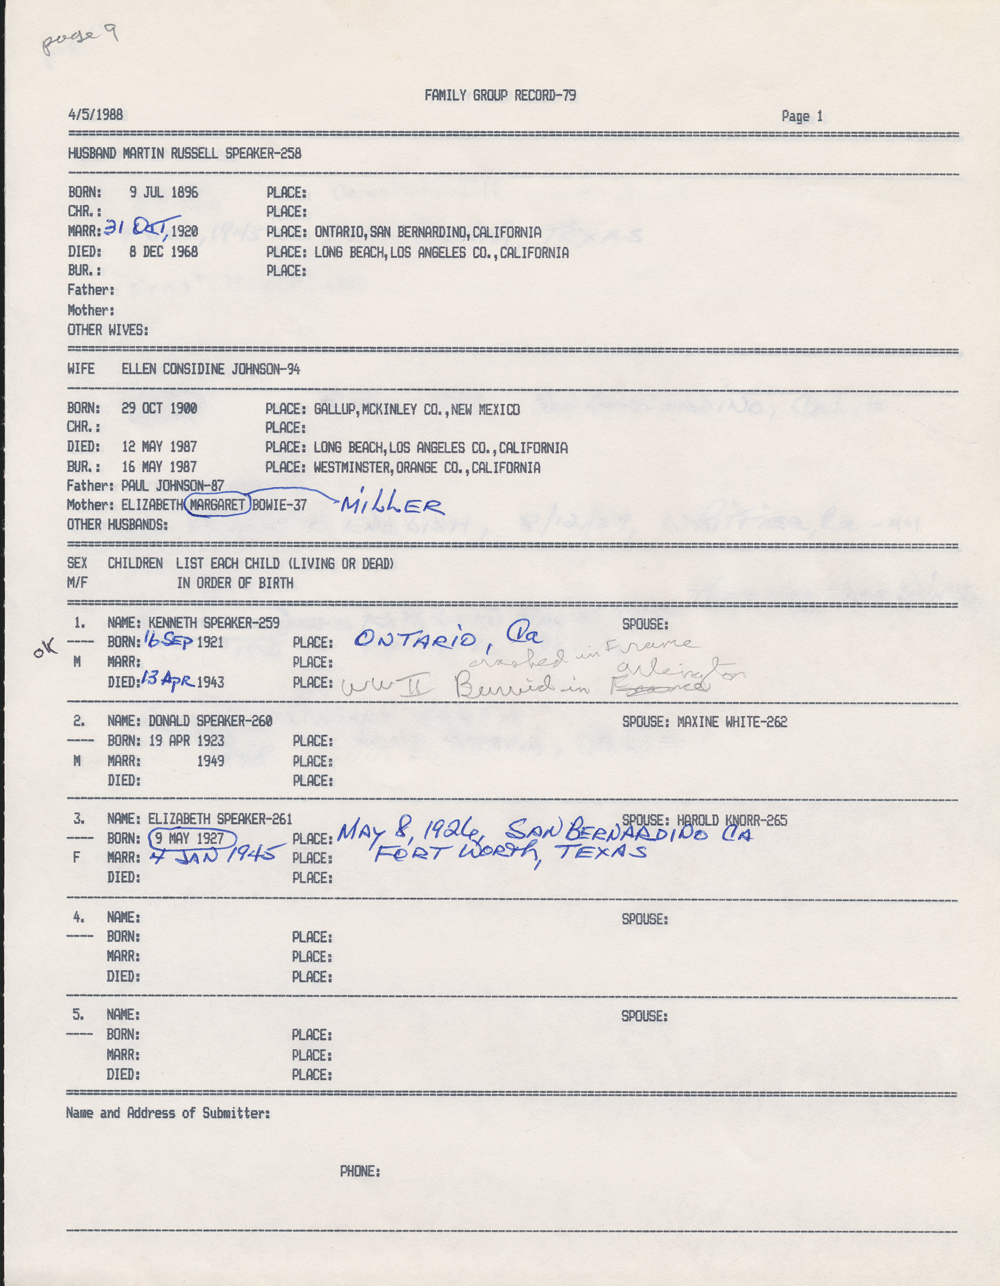 page 9
FAMILY GROUP RECORD-79
4/5/1988 Page 1
HUSBAND MARTIN RUSSELL SPEAKER-258
BORN: 9 JUL 1896 PLACE:
CHR.: PLACE:
MARR: 31 Oct, 1920 PLACE: ONTARIO,SAN BERNARDINO,CALIFORNIA
DIED: 8 DEC 1968 PLACE: LONG BEACH,LOS ANGELES CO.,CALIFORNIA
BUR.: PLACE:
Father:
Mother:
OTHER WIVES:
WIFE ELLEN CONSIDINE JOHNSON-94
BORN: 29 OCT 1900 PLACE: GALLUP,MCKINLEY CO.,NEW MEXICO
CHR.: PLACE:
DIED: 12 MAY 1987 PLACE: LONG BEACH,LOS ANGELES CO.,CALIFORNIA
BUR.: 16 MAY 1987 PLACE: WESTMINSTER,ORANGE CO.,CALIFORNIA
Father: PAUL JOHNSON-87
Mother: ELIZABETH MARGARET BOWIE-37 MILLER
OTHER HUSBANDS:
SEX CHILDREN LIST EACH CHILD (LIVING OR DEAD)
M/F IN ORDER OF BIRTH
1. NAME: KENNETH SPEAKER-259 SPOUSE:
OK ---- BORN: 16 SEP 1921 PLACE: ONTARIO, Ca
crashed in France
M MARR: PLACE: arlington
DIED: 13 Apr 1943 PLACE: WW II Burried in France
2. NAME: DONALD SPEAKER-260 SPOUSE: MAXINE WHITE-262
---- BORN: 19 APR 1923 PLACE:
M MARR: 1949 PLACE:
DIED: PLACE:
3. NAME: ELIZABETH SPEAKER-261 SPOUSE: HAROLD KNORR-265
---- BORN: 9 MAY 1927 PLACE: MAY 8, 1926, SAN BERNARDINO CA
F MARR: 4 JAN 1945 PLACE: FORT WORTH, TEXAS
DIED: PLACE:
4. NAME: SPOUSE:
---- BORN: PLACE:
MARR: PLACE:
DIED: PLACE:
5. NAME: SPOUSE:
---- BORN: PLACE:
MARR: PLACE:
DIED: PLACE:
Name and Address of Submitter:
PHONE: